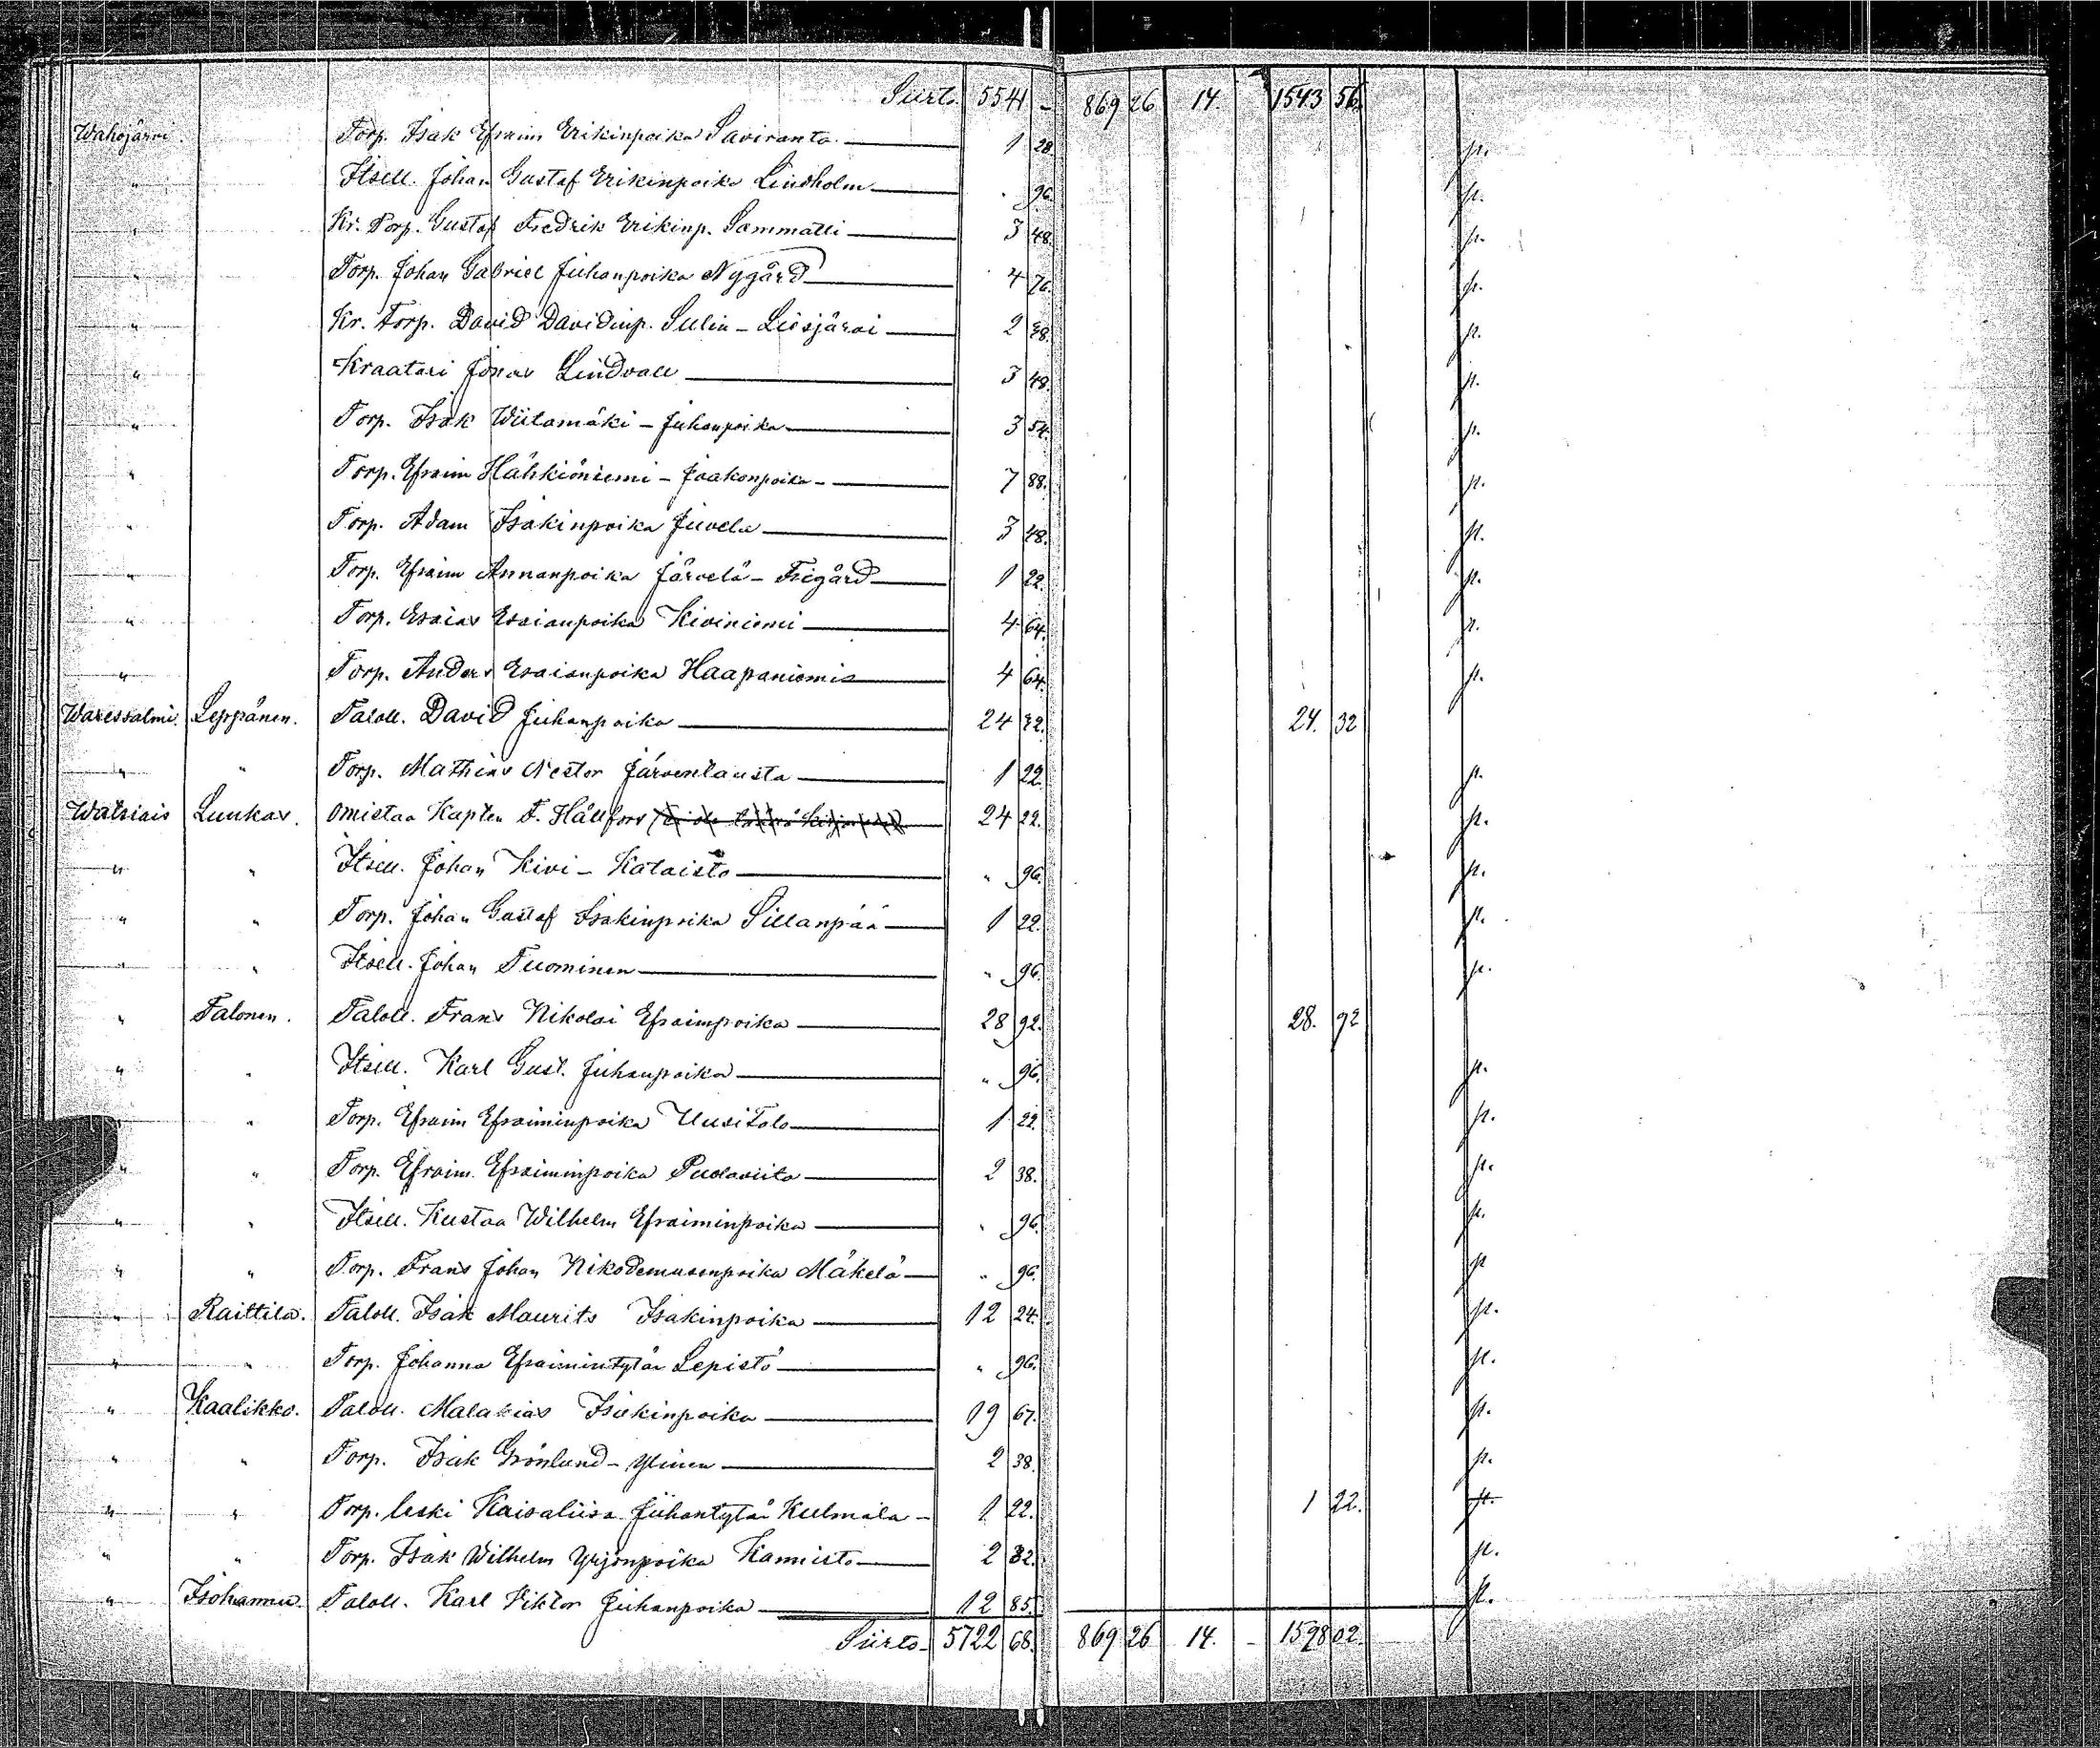 Siirto 5541 - 869 26 14. 1543 56.
Wahojärvi. Torp. Isak Efraim Erikinpoika Saviranta 1 28. p.
" Itsell. Johan Gustaf Erikinpoika Lindholm . 96. p.
" Kr. Torp. Gustaf Fredrik Erikinp. Sammatti 3 48. p.
" Torp. Johan Gabriel Juhanpoika Nygård 4 76. p.
" Kr. Torp. David Davidinp. Sulin - Liesjärvi 2 38. p.
" Kraatari Jonas Lindvall 3 48. p.
" Torp. Isak Wiitamäki - Juhanpoika 3 54. p.
" Torp. Efraim Hähkiöniemi - Jaakonpoika - 7 88. p.
" Torp. Adam Isakinpoika Juvela 3 48. p.
" Torp. Efraim Annanpoika Järvelä - Frigård 1 22. p.
" Torp. Esaias Esaianpoika Kiviniemi 4 64. p.
" Torp. Anders Esaianpoika Haapaniemi 4 64. p.
Waressalmi. Leppänen. Taloll. David Juhanpoika 24 32. 24. 32
" " Torp. Mathias Nestor Järventausta 1 22. p.
Watsiais Luukas. Omistaa Kapten F. Hällfors 24 22. p.
" " Itsell. Johan Kivi - Kataisto " 96. p.
" " Torp. Johan Gustaf Isakinpoika Sillanpää 1 22. p.
" " Itsell. Johan Tuominen " 96. p.
" Talonen. Taloll. Frans Nikolai Efraimpoika 28 92. 28. 92
" " Itsell. Karl Gust. Juhanpoika " 96. p.
" Torp. Efraim Efraiminpoika Uusitalo 1 22. p.
" " Torp. Efraim Efraiminpoika 2 38. p.
" " Itsell. Kustaa Wilhelm Efraiminpoika " 96. p.
" " Torp. Frans Johan Nikodemusenpoika Mäkelä " 96. p
" Raittila. Taloll. Isak Maurits Isakinpoika 12 24. p.
" " Torp. Johanna Efraimintytär Lepistö " 96. p.
" Kaalikko. Taloll. Malakias Isakinpoika 19 67. p.
" " Torp. Isak Grönlund - Ylinen 2 38. p.
" " Torp. leski Kaisaliisa Juhantytär Kulmala - 1 22. 1 22. p.
" " Torp. Isak Wilhelm Yrjönpoika Kannisto 2 32. p.
" Isohannu. Taloll. Karl Viktor Juhanpoika 12 85. p.
Siirto - 5722 68. 869 26 14. - 1598 02.